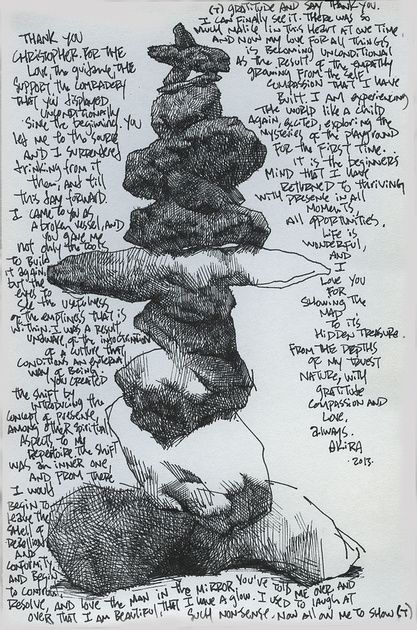 THANK YOU
CHRISTOPHER. FOR THE
LOVE, THE GUIDANCE, THE
SUPPORT THE COMRADERY
THAT YOU DISPLAYED
UNCONDITIONALLY
SINCE THE BEGINNING. YOU
LET ME TO THE SOURCE
AND I SURRENDERED
DRINKING FROM IT
THEN, AND TILL
THIS DAY FORWARD
I CAME TO YOU AS
A BROKEN VESSEL, AND
YOU GAVE ME
NOT ONLY THE TOOLS
TO BUILD
IT AGAIN,
BUT THE
EYES TO
SEE THE USEFULNESS
OF THE EMPTINESS THAT IS
WITHIN. I WAS A RESULT
UNAWARE, OF THE INTOXICATION
OF A CULTURE THAT
CONDITIONS AN EXTERNAL
WAY OF BEING.
YOU CREATED
THE SHIFT BY
INTRODUCING THE
CONCEPT OF PRESENSE,
AMONG OTHER SPIRITUAL
ASPECTS, TO MY
REPERTOIRE. THE SHIFT
WAS AN INNER ONE,
AND FROM THERE
I WOULD
BEGIN TO
LEAVE THE
SHELL OF
REBELLION
AND
CONFORMITY,
AND BEGIN
TO CONFRONT,
RESOLVE, AND LOVE THE MAN IN THE MIRROR. YOU'VE TOLD ME OVER AND
OVER THAT I AM BEAUTIFUL, THAT I HAVE A GLOW. I USED TO LAUGH AT
SUCH NONSENSE. NOW ALLOW ME TO SHOW (+)
(+) GRATITUDE AND SAY THANK YOU.
I CAN FINALLY SEE IT. THERE WAS SO
MUCH MALICE IN THIS HEART AT ONE TIME,
AND NOW MY LOVE FOR ALL THINGS,
IS BECOMING UNCONDITIONAL
AS THE RESULT OF THE EMPATHY
GROWING FROM THE SELF
COMPASSION THAT I HAVE
BUILT. I AM EXPERIENCING
THE WORLD LIKE A CHILD
AGAIN EXCITED, EXPLORING THE
MYSTERIES OF THE PLAYGROUND
FOR THE FIRST TIME.
IT IS THE BEGINNERS
MIND THAT I HAVE
RETURNED TO THRIVING
WITH PRESENCE IN ALL
MOMENTS
ALL OPPORTUNITIES.
LIFE IS
WONDERFUL,
AND
I
LOVE YOU
FOR
SHOWING THE
MAP
TO ITS
HIDDEN TREASURE.
FROM THE DEPTHS
OF MY TRUEST
NATURE, WITH
GRATITUDE
COMPASSION AND
LOVE,
ALWAYS.
AKIRA
.2013.